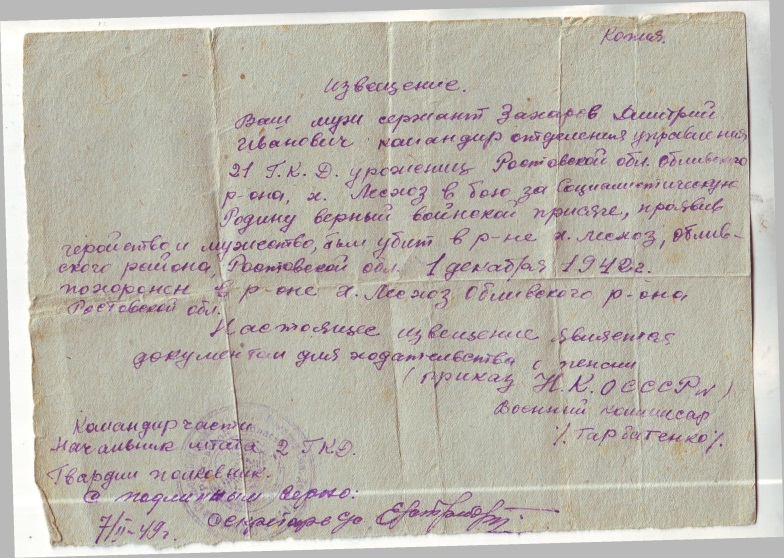 Копия.
Извещение.
Ваш муж сержант Захаров Дмитрий
Иванович командир отделения управления
21 Г.К.Д. уроженец Ростовской обл. Обливского
р-она, х. Лесхоз в бою за Социалистическую
Родину верный войнской присяге, проявив
геройство и мужество, был убит в р-не х. Лесхоз, Облив-
ского района, Ростовской обл. 1 декабря 1942 г.
похоронен в р-оне х. Лесхоз Обливского р-она,
Ростовской обл.
Настоящее извещение является
документом для ходательства о пенсии
(приказ Н.К.ОСССР №)
Военний комиссар
/. Гарбатенко /.
Командир части
Начальник штаба 2 ГКД.
Гвардии полковник.
С подлинным верно:
7/II-49 г. Секретарь